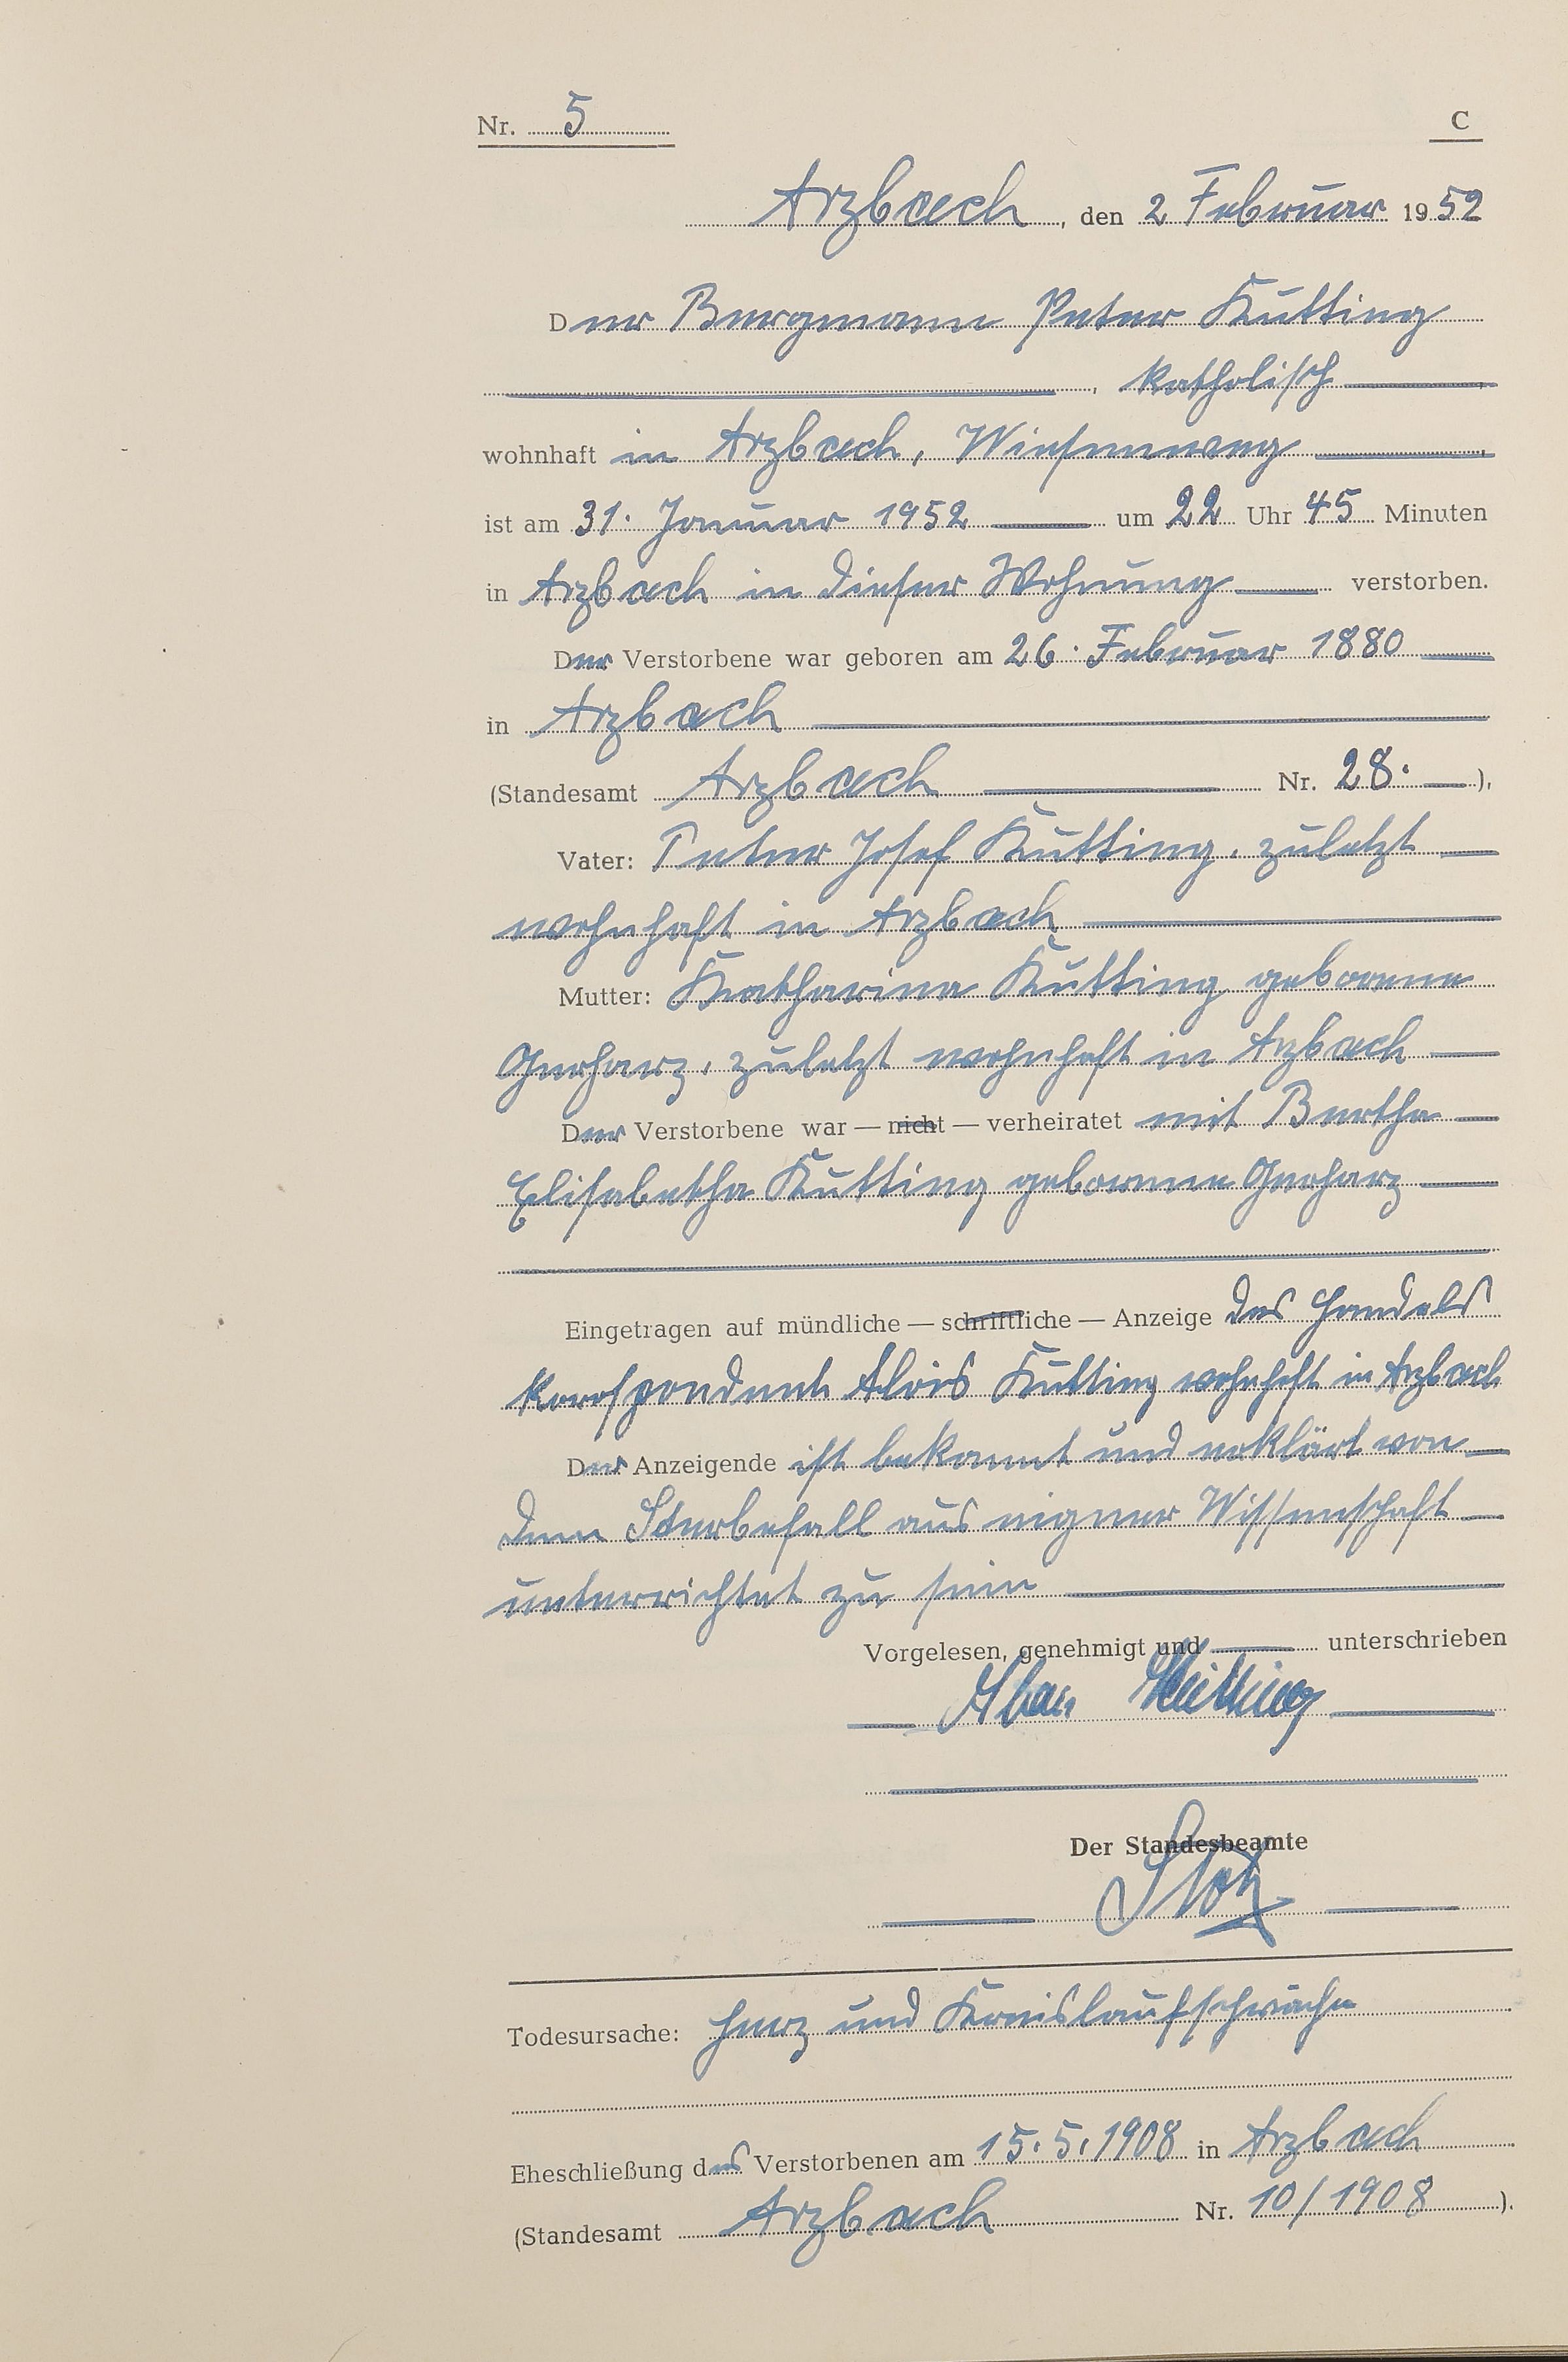 Nr. 5
C
Arzbach, den 2 Februar 1952
Der Bergmann Peter Kütting
, katholisch
wohnhaft in Arzbach, Wiesenweg
ist am 31. Januar 1952 um 22 Uhr 45 Minuten
in Arzbach in dieser Wohnung verstorben.
Der Verstorbene war geboren am 26. Februar 1880
in Arzbach
(Standesamt Arzbach Nr. 28. ),
Vater: Peter Josef Kütting, zuletzt
wohnhaft in Arzbach
Mutter: Katharina Kütting geborene
Gerharz, zuletzt wohnhaft in Arzbach
Der Verstorbene war — nicht — verheiratet mit Bertha
Elisabetha Kütting geborene Gerharz
Eingetragen auf mündliche — schriftliche — Anzeige des Handels
korospondent Alois Kütting wohnhaft in Arzbach
Der Anzeigende ist bekannt und erklärt von
dem Sterbefall aus eigner Wissenschaft
unterrichtet zu sein
Vorgelesen, genehmigt und unterschrieben
Alois Kütting
Der Standesbeamte
Todesursache: Herz und Kreislaufschwäche
Eheschließung des Verstorbenen am 15.5.1908 in Arzbach
(Standesamt Arzbach Nr. 10/1908 ).